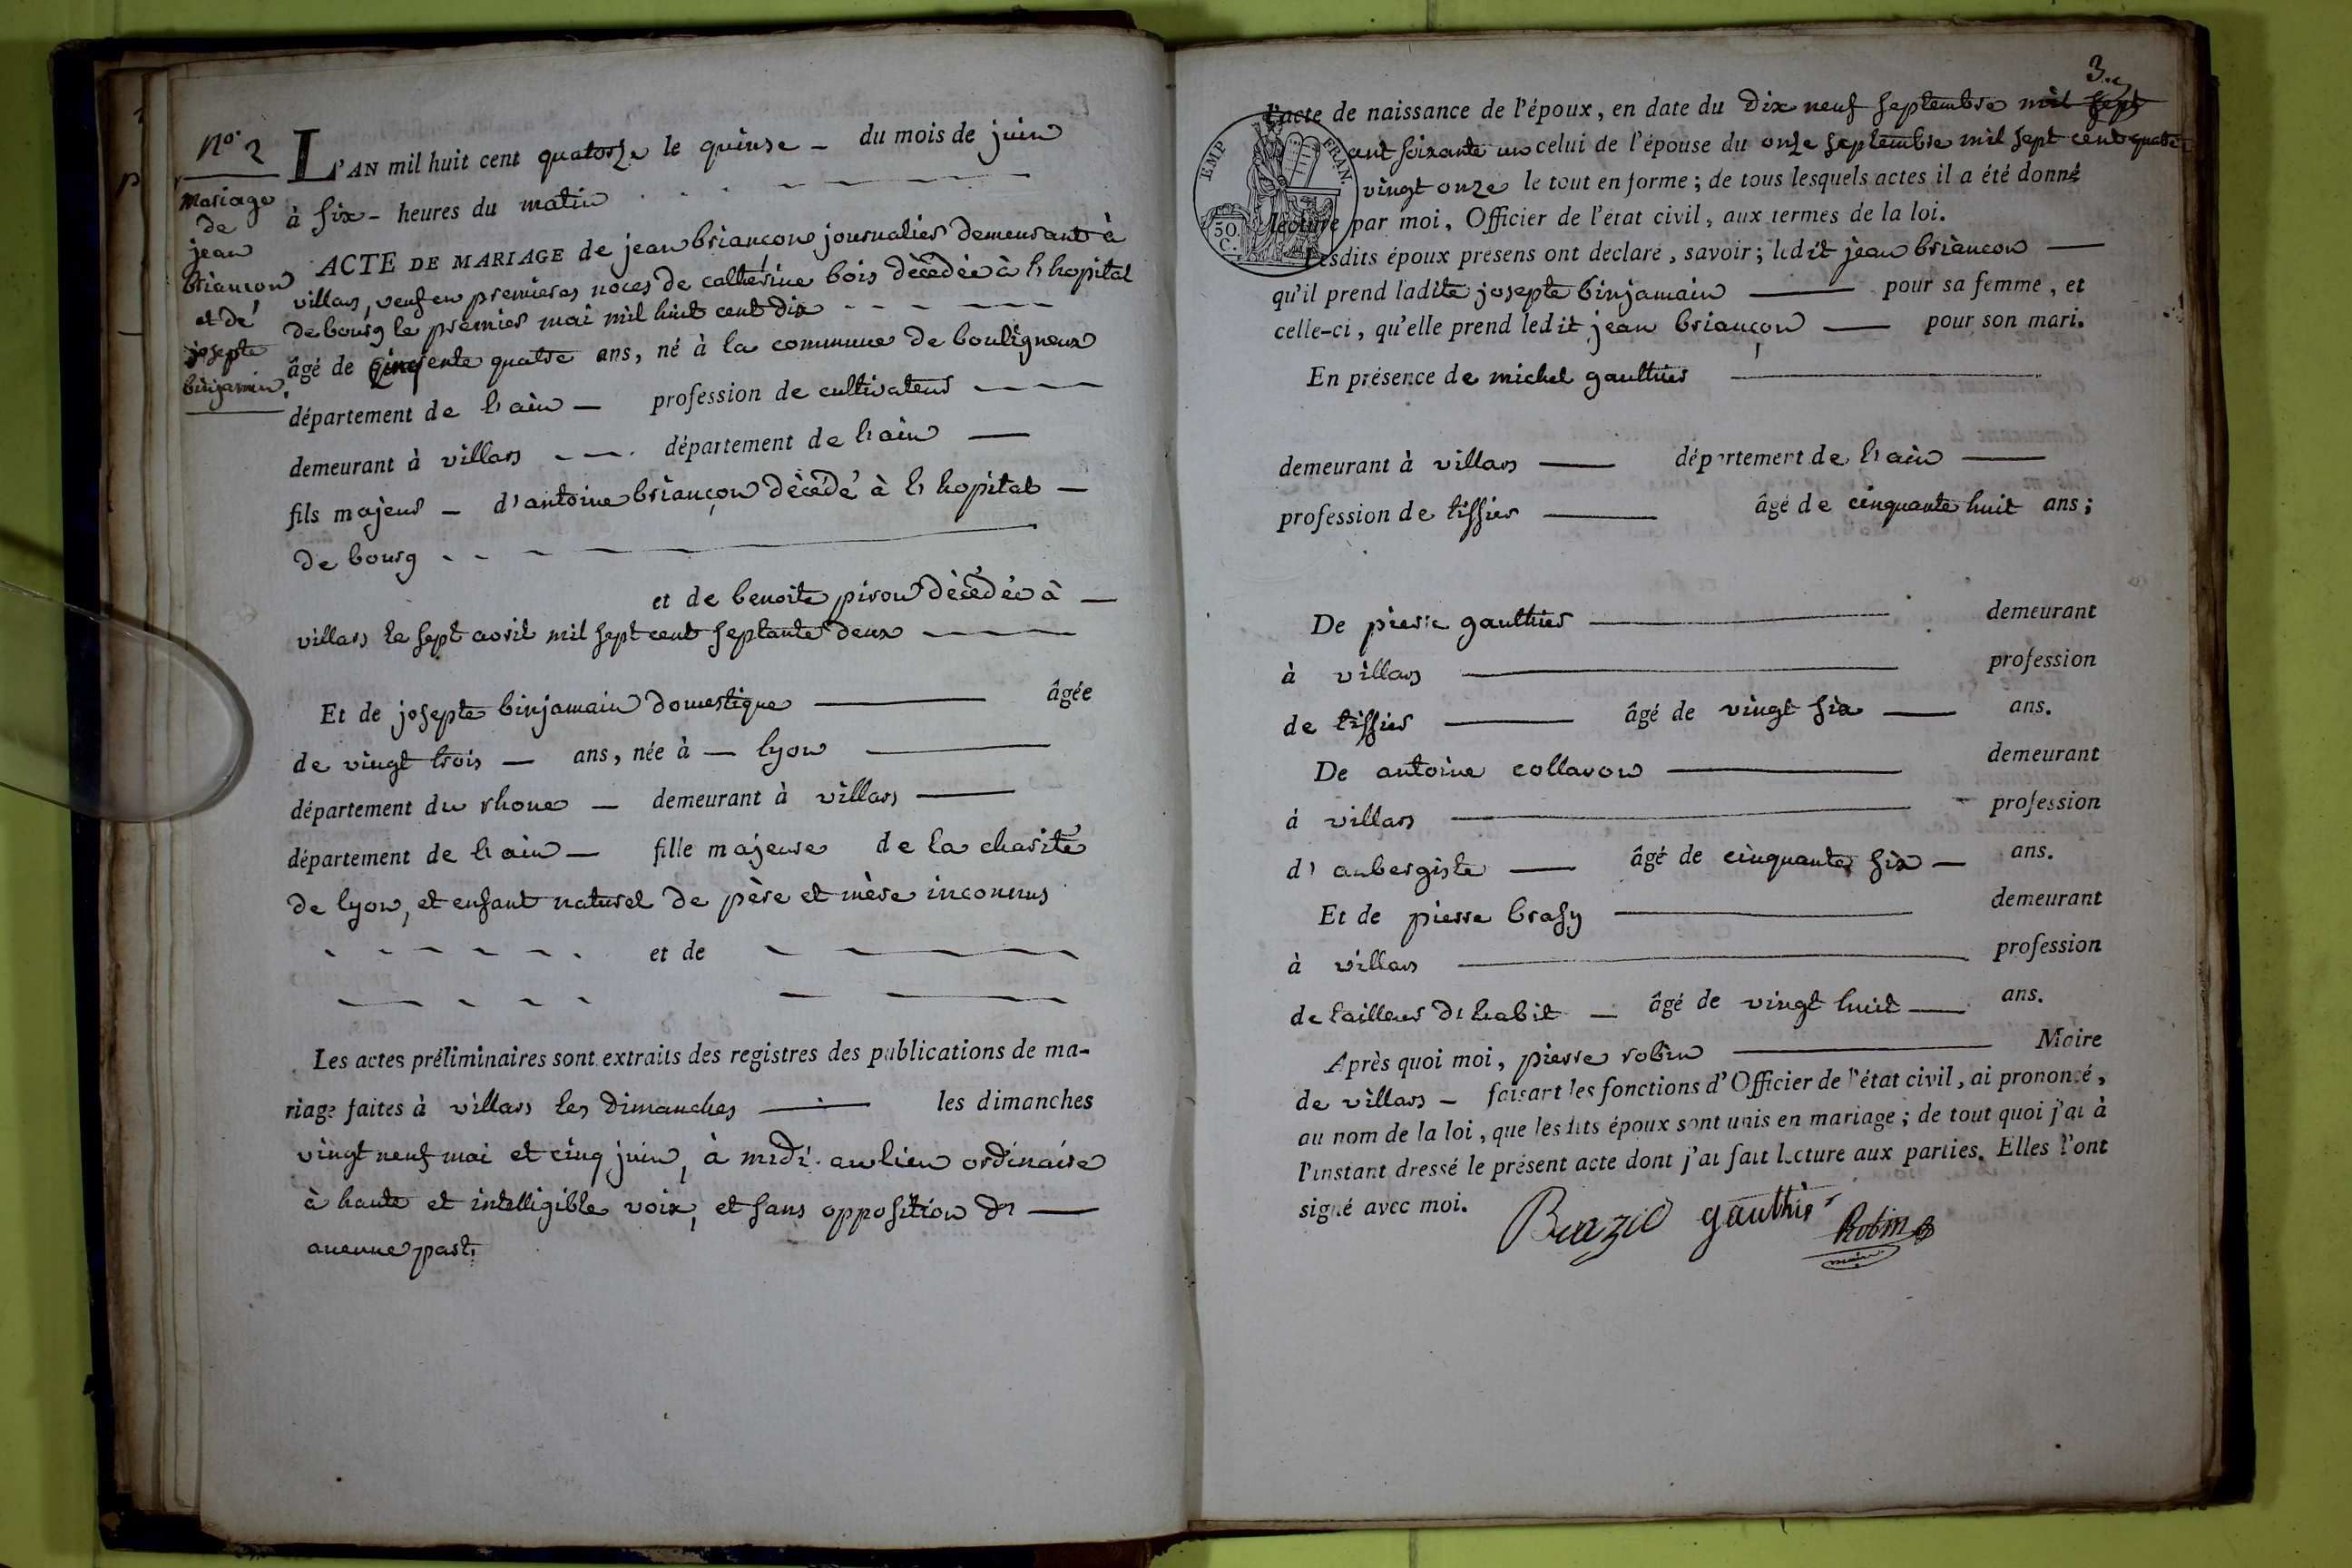 No. 2
Mariage
de
jean
briançon
et de
josepte
binjamin.
L'AN mil huit cent quatorze le quinze - du mois de juin
à six - heures du matin
ACTE DE MARIAGE de jean briançon journalier demeurant à
villars, veuf en premieres noces de catherine bois décédée à l'hopital
de bourg le premier mai mil huit cent dix
âgé de cinqente quatre ans, né à la commune de bouligneux
département de l'ain - profession de cultivateur
demeurant à villars - département de l'ain
fils majeur - d'antoine briançon décédé à l'hopital
de bourg
et de benoite piron décédée à
villars le sept avril mil sept cent septante deux
Et de josepte binjamain domestique âgée
de vingt trois - ans, née à - lyon
département du rhone - demeurant à villars
département de l'ain - fille majeure de la charité
de lyon, et enfant naturel de père et mère inconnus
et de
Les actes préliminaires sont extraits des registres des publications de ma-
riage faites à villars les dimanches les dimanches
vingt neuf mai et cinq juin, à midi au lieu ordinaire
à haute et intelligible voix, et sans opposition d'
aucune part.
3.
l'acte de naissance de l'époux, en date du dix neuf septembre mil sept
cent soixante un celui de l'épouse du onze septembre mil sept cent quatre
vingt onze le tout en forme; de tous lesquels actes il a été donné
lecture par moi, Officier de l'état civil, aux termes de la loi.
EMP FRAN
50.
C.
Lesdits époux présens ont déclaré, savoir; ledit jean briancon
qu'il prend ladite josepte binjamain pour sa femme, et
celle-ci, qu'elle prend ledit jean briançon pour son mari.
En présence de michel gauthier
demeurant à villars département de l'ain
profession de tissier âgé de cinquante huit ans;
De pierre gauthier demeurant
à villars profession
de tissier âgé de vingt six ans.
De antoine collavon demeurant
à villars profession
d'aubergiste âgé de cinquante six - ans.
Et de pierre brasy demeurant
à villars profession
de tailleur d'habit - âgé de vingt huit ans.
Après quoi moi, pierre robin Maire
de villars - faisant les fonctions d'Officier de l'état civil, ai prononcé,
au nom de la loi, que lesdits époux sont unis en mariage; de tout quoi j'ai à
l'instant dressé le présent acte dont j'ai fait lecture aux parties. Elles l'ont
signé avec moi.
Brazic gauthier Robin
maire